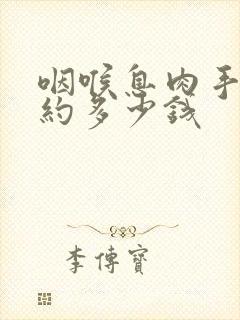 咽喉息肉手
約多少錢
李傳寶